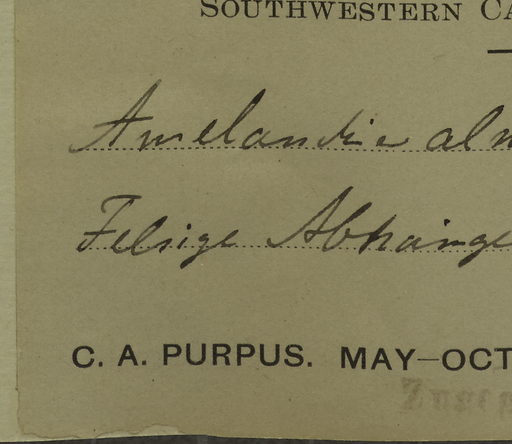 SOUTHWESTERN CA
Amelandia aln
Felsige Abhänge
C. A. PURPUS. MAY—OCT